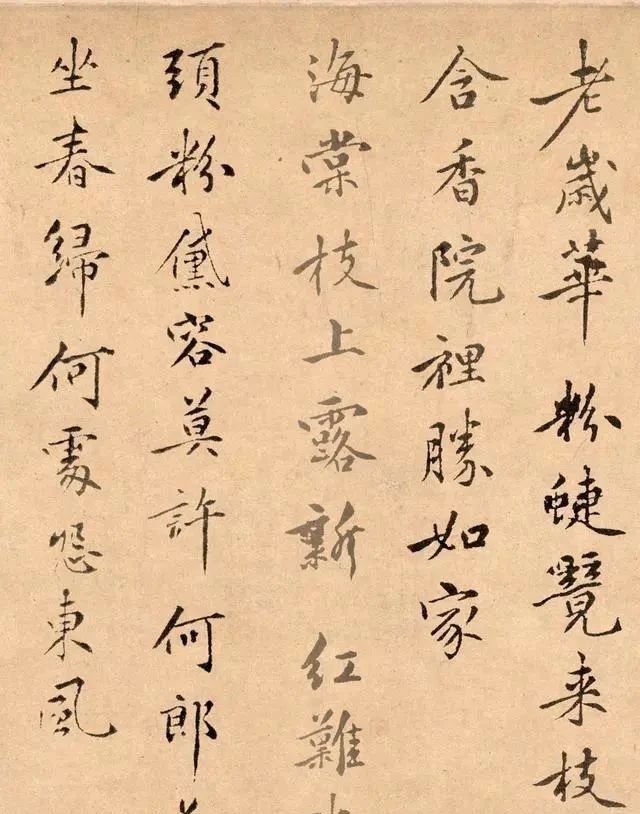 老歲華粉蜨覺來枝
含香院裡勝如家
海棠枝上露新紅難
頭粉黛容莫許何郎
坐春歸何處怨東風